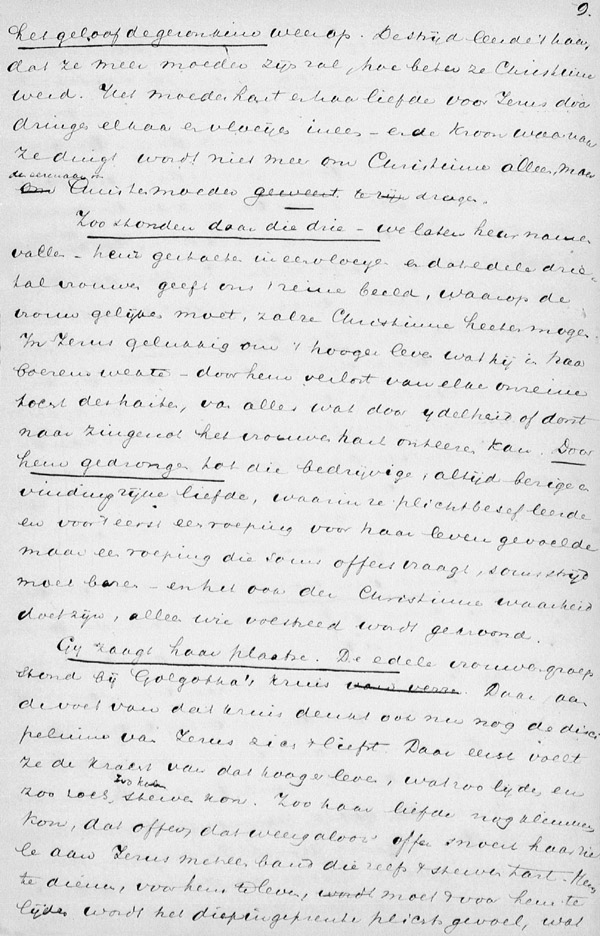 9.
het geloof de gezonkene weer op. De strijd leerde 't haar,
dat ze meer moeder zijn zal, hoe beter ze Christinne
werd. Het moederhart en haar liefde voor Jezus door
dringen elkaar en vloeijen ineen – en de kroon waarvan
ze dingt wordt niet meer om Christinne alleen, maar
om Christenmoeder geweest te zijn dragen.
Zoo stonden daar die drie – we laten hear namen
vallen – heur gestalten ineenvloeijen en dat edele drie-
tal vrouwen geeft ons 't reine beeld, waarop de
vrouw gelijken moet, zal ze Christinne heeten mogen
In Jezus gelukkig om 't hooger leven wat hij in haar
boezem wekte – door hem verlost van elke onreine
tocst des harten, van alles wat door ijdelheid of dorst
naar zingenot het vrouwenhart onteeren kan. Door
hem gedrongen tot die bedrijvige, altijd bezige en
vindingrijke liefde, waarin ze plichtbesef leerde
en voor 't eerst een roeping voor haar leven gevoelde
maar een roeping die soms offers vraagt, soms strijd
moet baren – en het ook der Christinne waarheid
doet zijn, alleen wie volstreed wordt gekroond.
Gij zaagt haar plaatse. De edele vrouwengroep
stond bij Golgotha's kruis van verre. Daar aan
de voet van dat kruis denkt ook nu nog de disci
pelinne van Jezus zich 't liefst Daar eerst voelt
ze de kracht van dat hooge leven, wat zoo lijden en
zoo kalm
zoo rocs, sterven kon. Zoo haar liefde nog kleuren
kon, dat offer, dat weergaloos offer snoert haar zie
le aan Jezus met een band die zelfs 't sterven tart. Hem
te dienen, voor hem te leven, wordt moet 't voor hem te
lijden wordt het diep ingeprente plichtsgevoel, wat